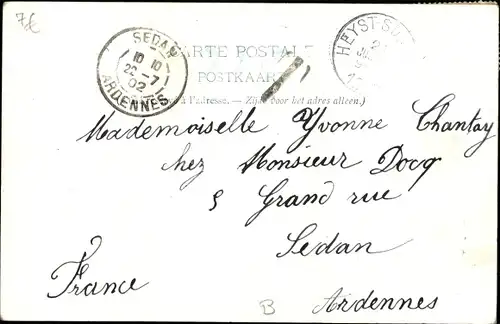 7f
SEDAN
10 10
22 - 7
02
ARDENNES
CARTE POSTALE
POSTKAART
HEYST-S
à l'adresse. — Zijde voor het adres alleen.)
Mademoiselle Yvonne Chantay
chez Monsieur Docq
5 Grand rue
Sedan
France
B
Ardennes